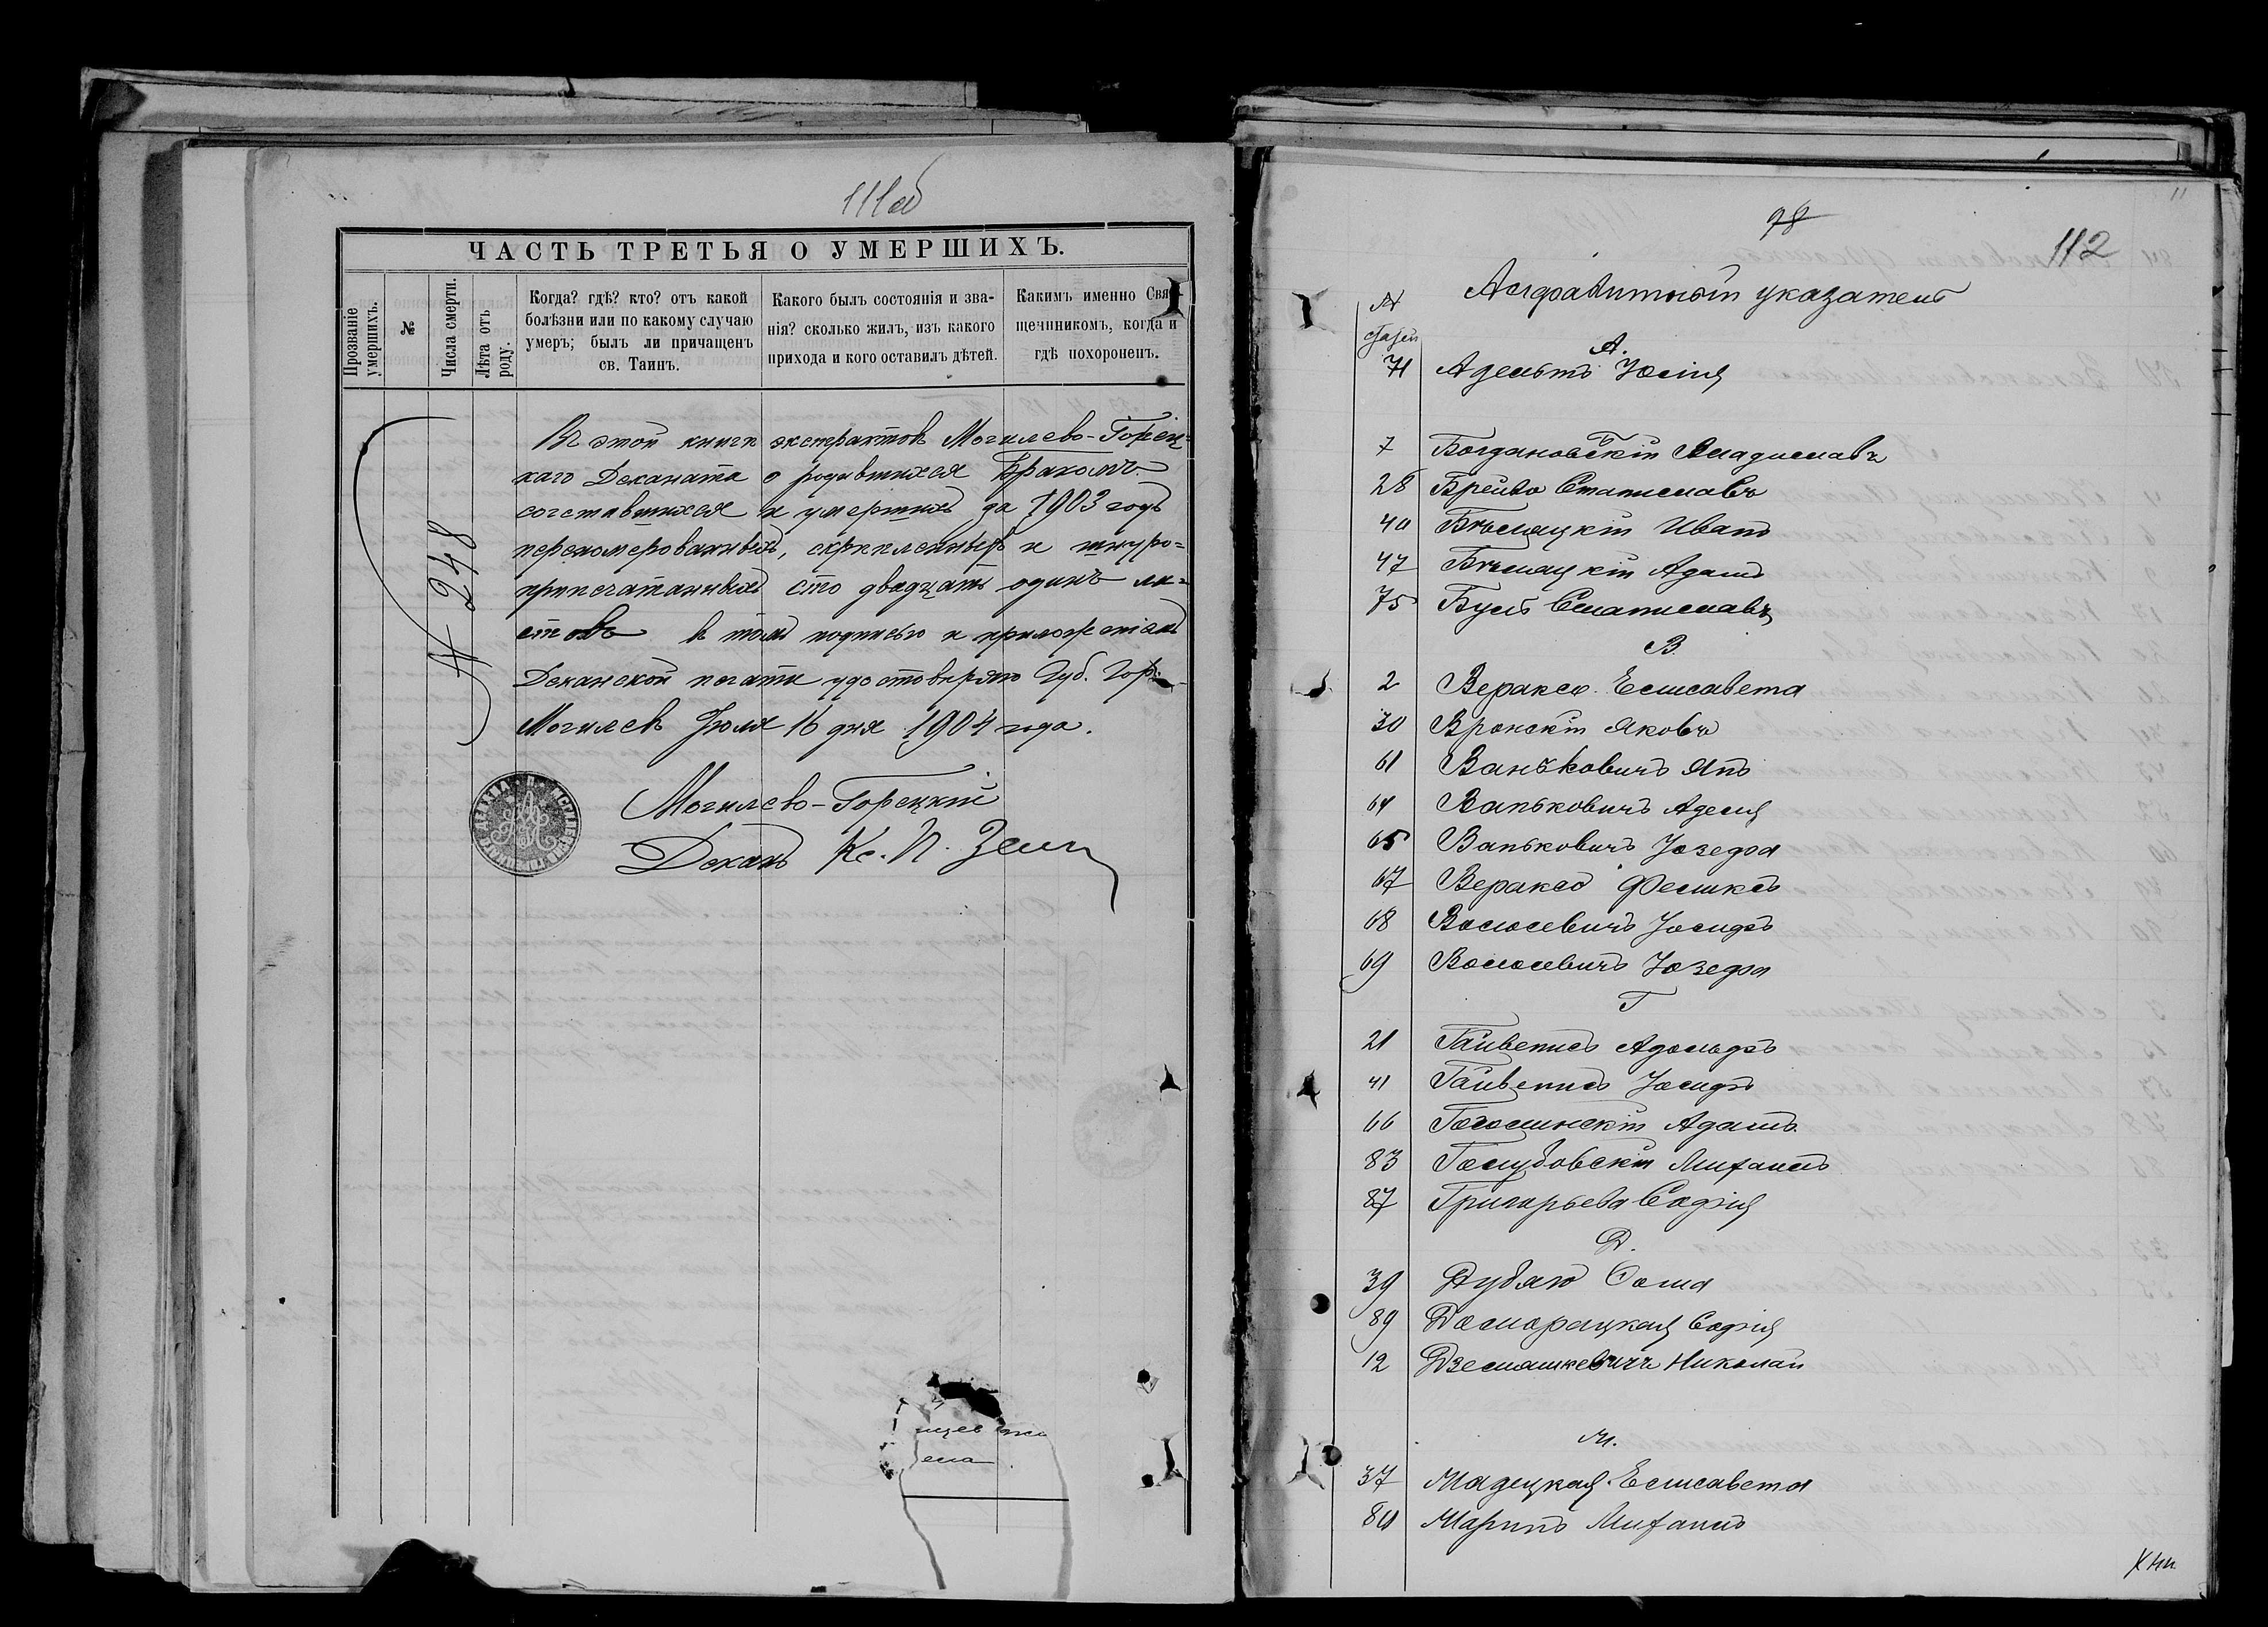 111об
ЧАСТЬ ТРЕТЬЯ О УМЕРШИХЪ.
Прозваніе умершихъ.
№
Числа смерти.
Лѣта отъ роду.
Когда? гдѣ? кто? отъ какой
болѣзни или по какому случаю
умеръ; былъ ли причащенъ
св. Таинъ.
Какого былъ состоянія и зва-
нія? сколько жилъ, изъ какого
прихода и кого оставилъ дѣтей.
Какимъ именно Свя-
щенникомъ, когда и
гдѣ похороненъ.
№ 248
Въ этой книгѣ экстрактовъ Могилево-Горец-
каго Деканата о родившихся Бракомъ
сочетавшихся и умершихъ за 1903 годъ
перенумерованныхъ, скрѣпленныхъ и шнуро=
припечатанныхъ сто двадцать одинъ ли=
стовъ в томъ подписью и приложеніемъ
Деканской печати удостовѣряю Губ. Гор.
Могилевъ Іюля 16 дня 1904 года.
Могилево-Горецкій
Деканъ Кс. П.
98
112
Алфавитный указатель
№
А.
71 Адельтъ Юлія
7 Богдановскій Владиславъ
28 Брейво Станиславъ
40 Бѣлецкій Иванъ
47 Бѣлецкій Адамъ
75 Буль Станиславъ
В.
2 Веракса Елисавета
30 Вронскій Яковъ
61 Ваньковичъ Янъ
64 Ваньковичъ Аделя
65 Ваньковичъ Іозефа
67 Веракса Феликсъ
68 Волосевичъ Іосифъ
69 Волосевичъ Іозефа
Г
21 Гайвенисъ Адольфъ
41 Гайвенисъ Іосифъ
66 Гоголинскій Адамъ
83 Голубовскій Михаилъ
87 Григорьева Софія
Д.
39 Дубяго Ѳома
89 Доморацкая Софія
12 Дземяшкевичъ Николай
М.
37 Мадецкая Елисавета
84 Маринъ Михаилъ